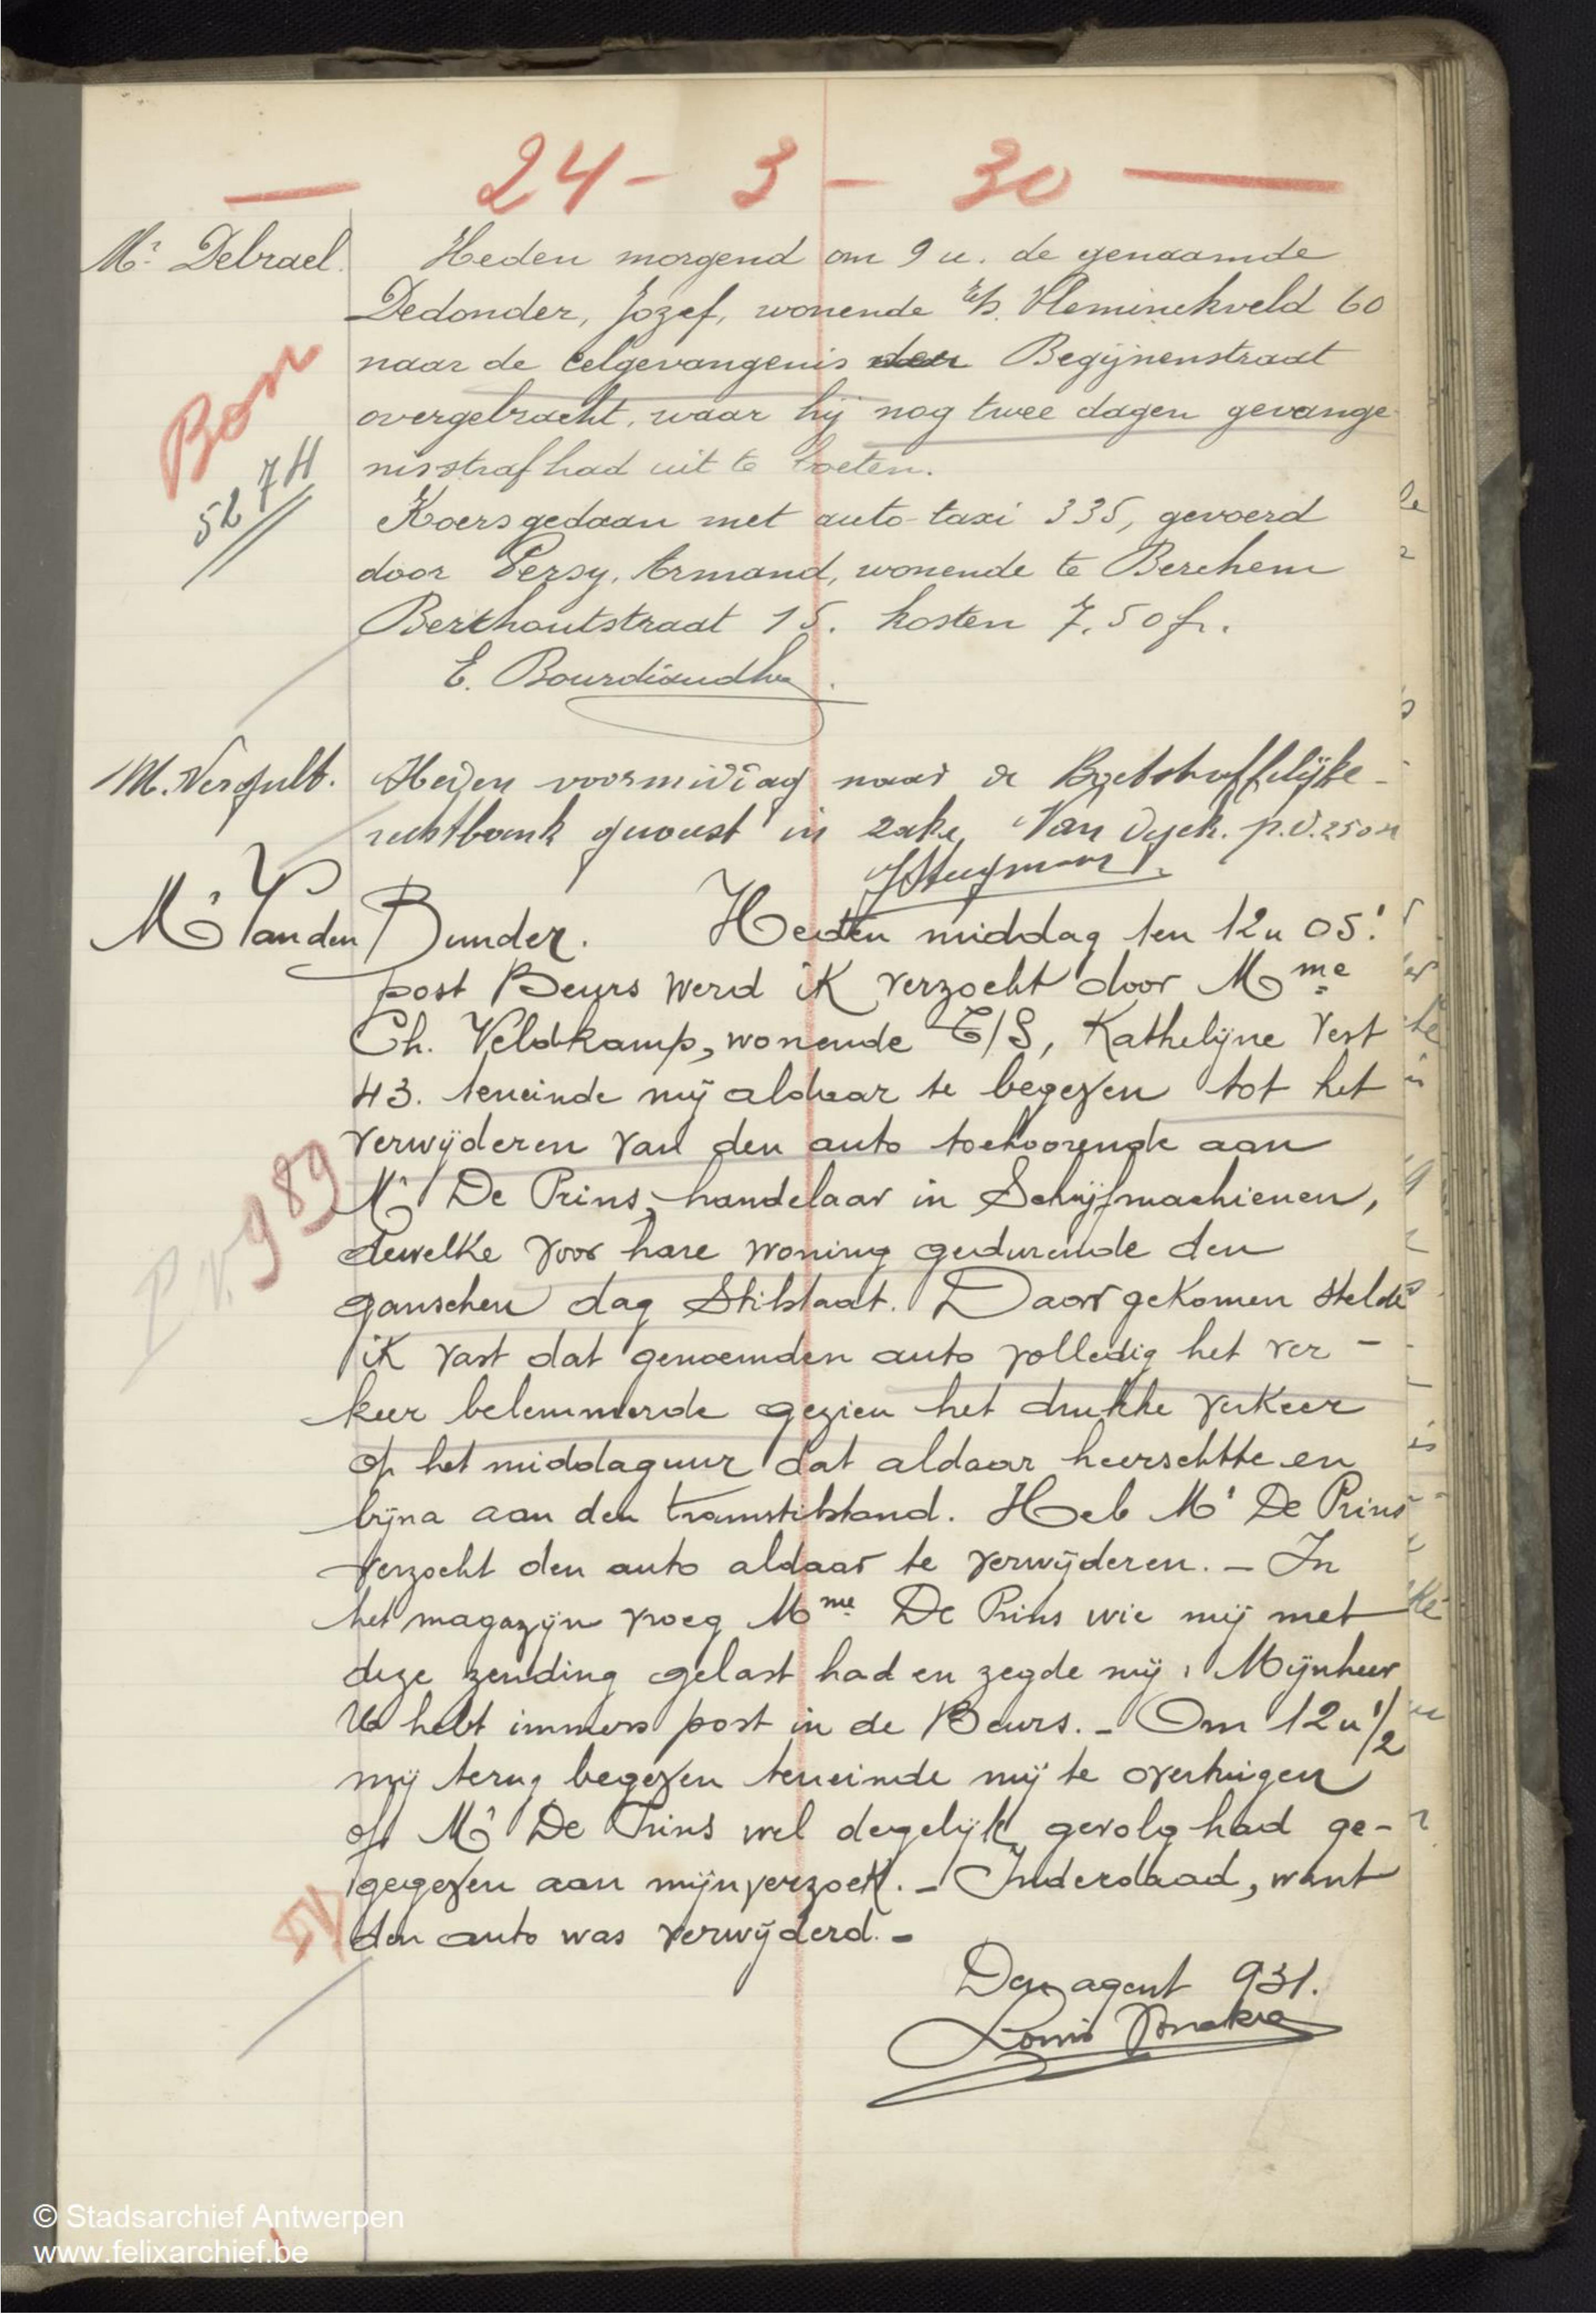 — 24 - 3 - 30 —
Mr Debrael.
Heden morgend om 9 u. de genaamde
Dedonder, Jozef, wonende t/s. Vleminckveld 60
naar de celgevangenis der Begijnenstraat
overgebracht, waar hij nog twee dagen gevange-
nisstraf had uit te boeten.
Koers gedaan met auto-taxi 335, gevoerd
door Persy, Armand, wonende te Berchem
Berthoutstraat 15. kosten 7.50 fr.
Bon
E.
M. Vergult.
Heden voormiddag naar de Boetstraffelijke-
rechtbank geweest in zake Van Dyck. p.v. 250
Mr Vanden Bunder. Heden middag ten 12 u 05'
post Beurs werd ik verzocht door Mme
Ch. Veldkamp, wonende T/S, Kathelijne Vest
43. teneinde mij aldaar te begeven tot het
verwijderen van den auto toehoorende aan
Mr De Prins, handelaar in Schrijfmachienen,
dewelke voor hare woning gedurende den
ganschen dag Stilstaat. Daar gekomen stelde
ik vast dat genoemden auto volledig het ver-
keer belemmerde gezien het drukke verkeer
op het middaguur dat aldaar heerschtte en
bijna aan den tramstilstand. Heb Mr De Prins
verzocht den auto aldaar te verwijderen. - In
het magazijn vroeg Mme De Prins wie mij met
deze zending gelast had en zegde mij, Mijnheer
U hebt immers post in de Beurs. - Om 12 u 1/2
mij terug begeven teneinde mij te overtuigen
of Mr De Prins wel degelijk gevolg had ge-
gegeven aan mijn verzoek. - Inderdaad, want
den auto was verwijderd. -
P.V. 989
Den agent 931.
Louis
© Stadsarchief Antwerpen
www.felixarchief.be